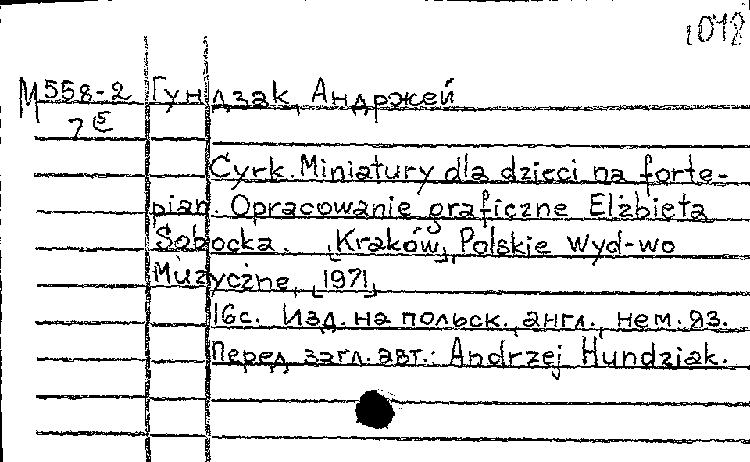 1018
М 558-2 Гундзак, Анджей
7 Е
Cyrk. Miniatury dla dzieci na forte-
pian. Opracowanie graficzne Elżbieta
Sobocka. [Kraków], Polskie Wyd-wo
Muzyczne, [1971]
16с. Изд. на польск., англ., нем. яз.
Перед загл. авт.: Andrzej Hundziak.